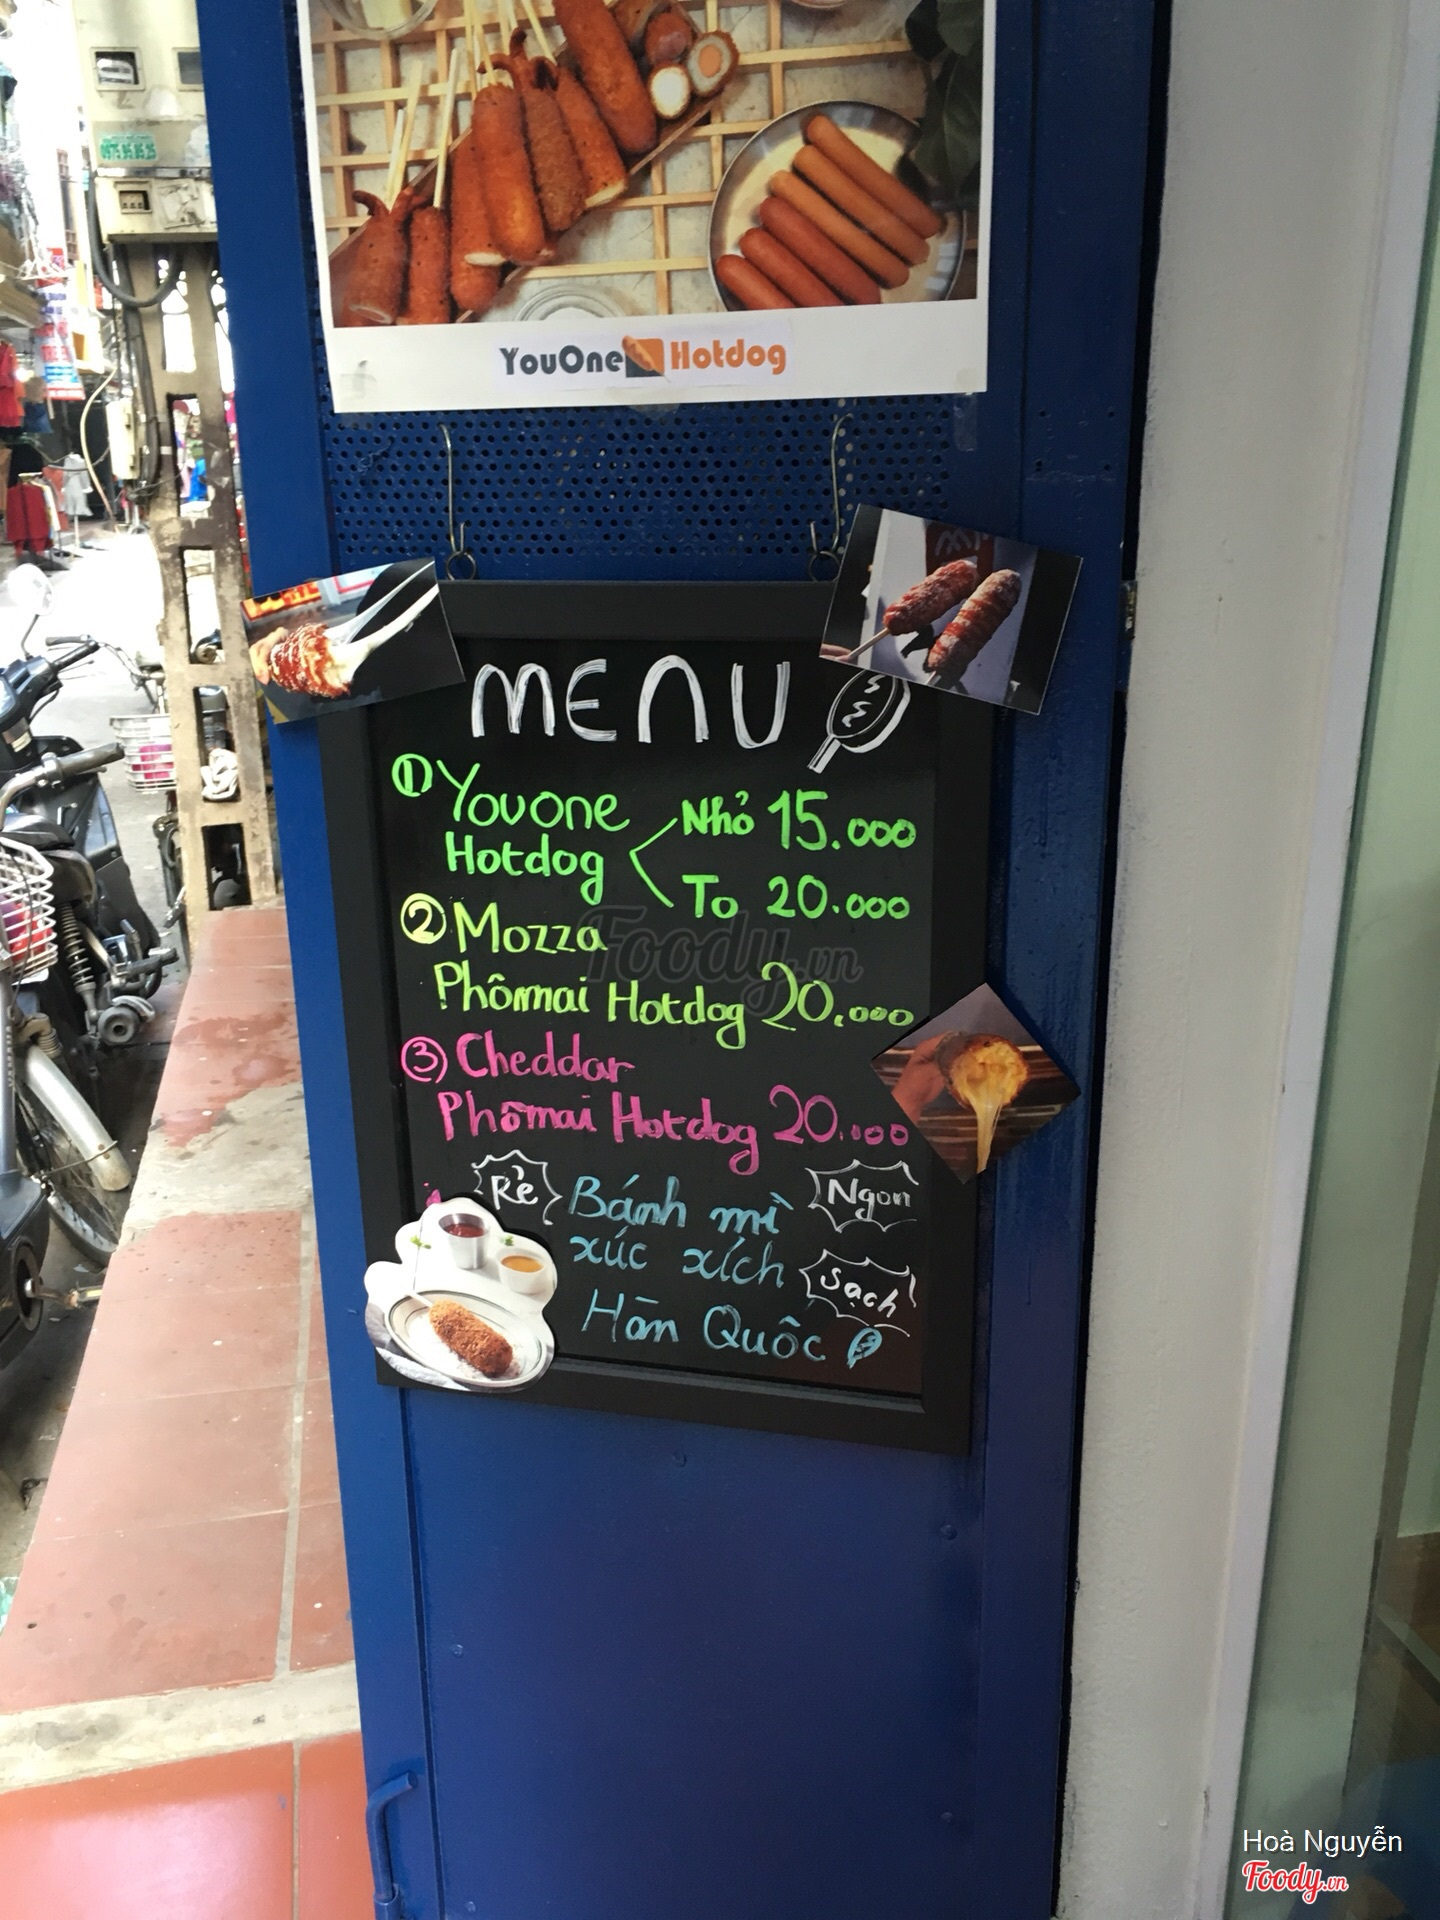 0975.95.85.25
YouOne Hotdog
MENU
① Youone Hotdog
Nhỏ 15.000
To 20.000
② Mozza
Phômai Hotdog 20.000
③ Cheddar
Phômai Hotdog 20.000
Rẻ
Bánh mì
Ngon
xúc xích
Sạch
Hàn Quốc
Foody.vn
Hoà Nguyễn
Foody.vn